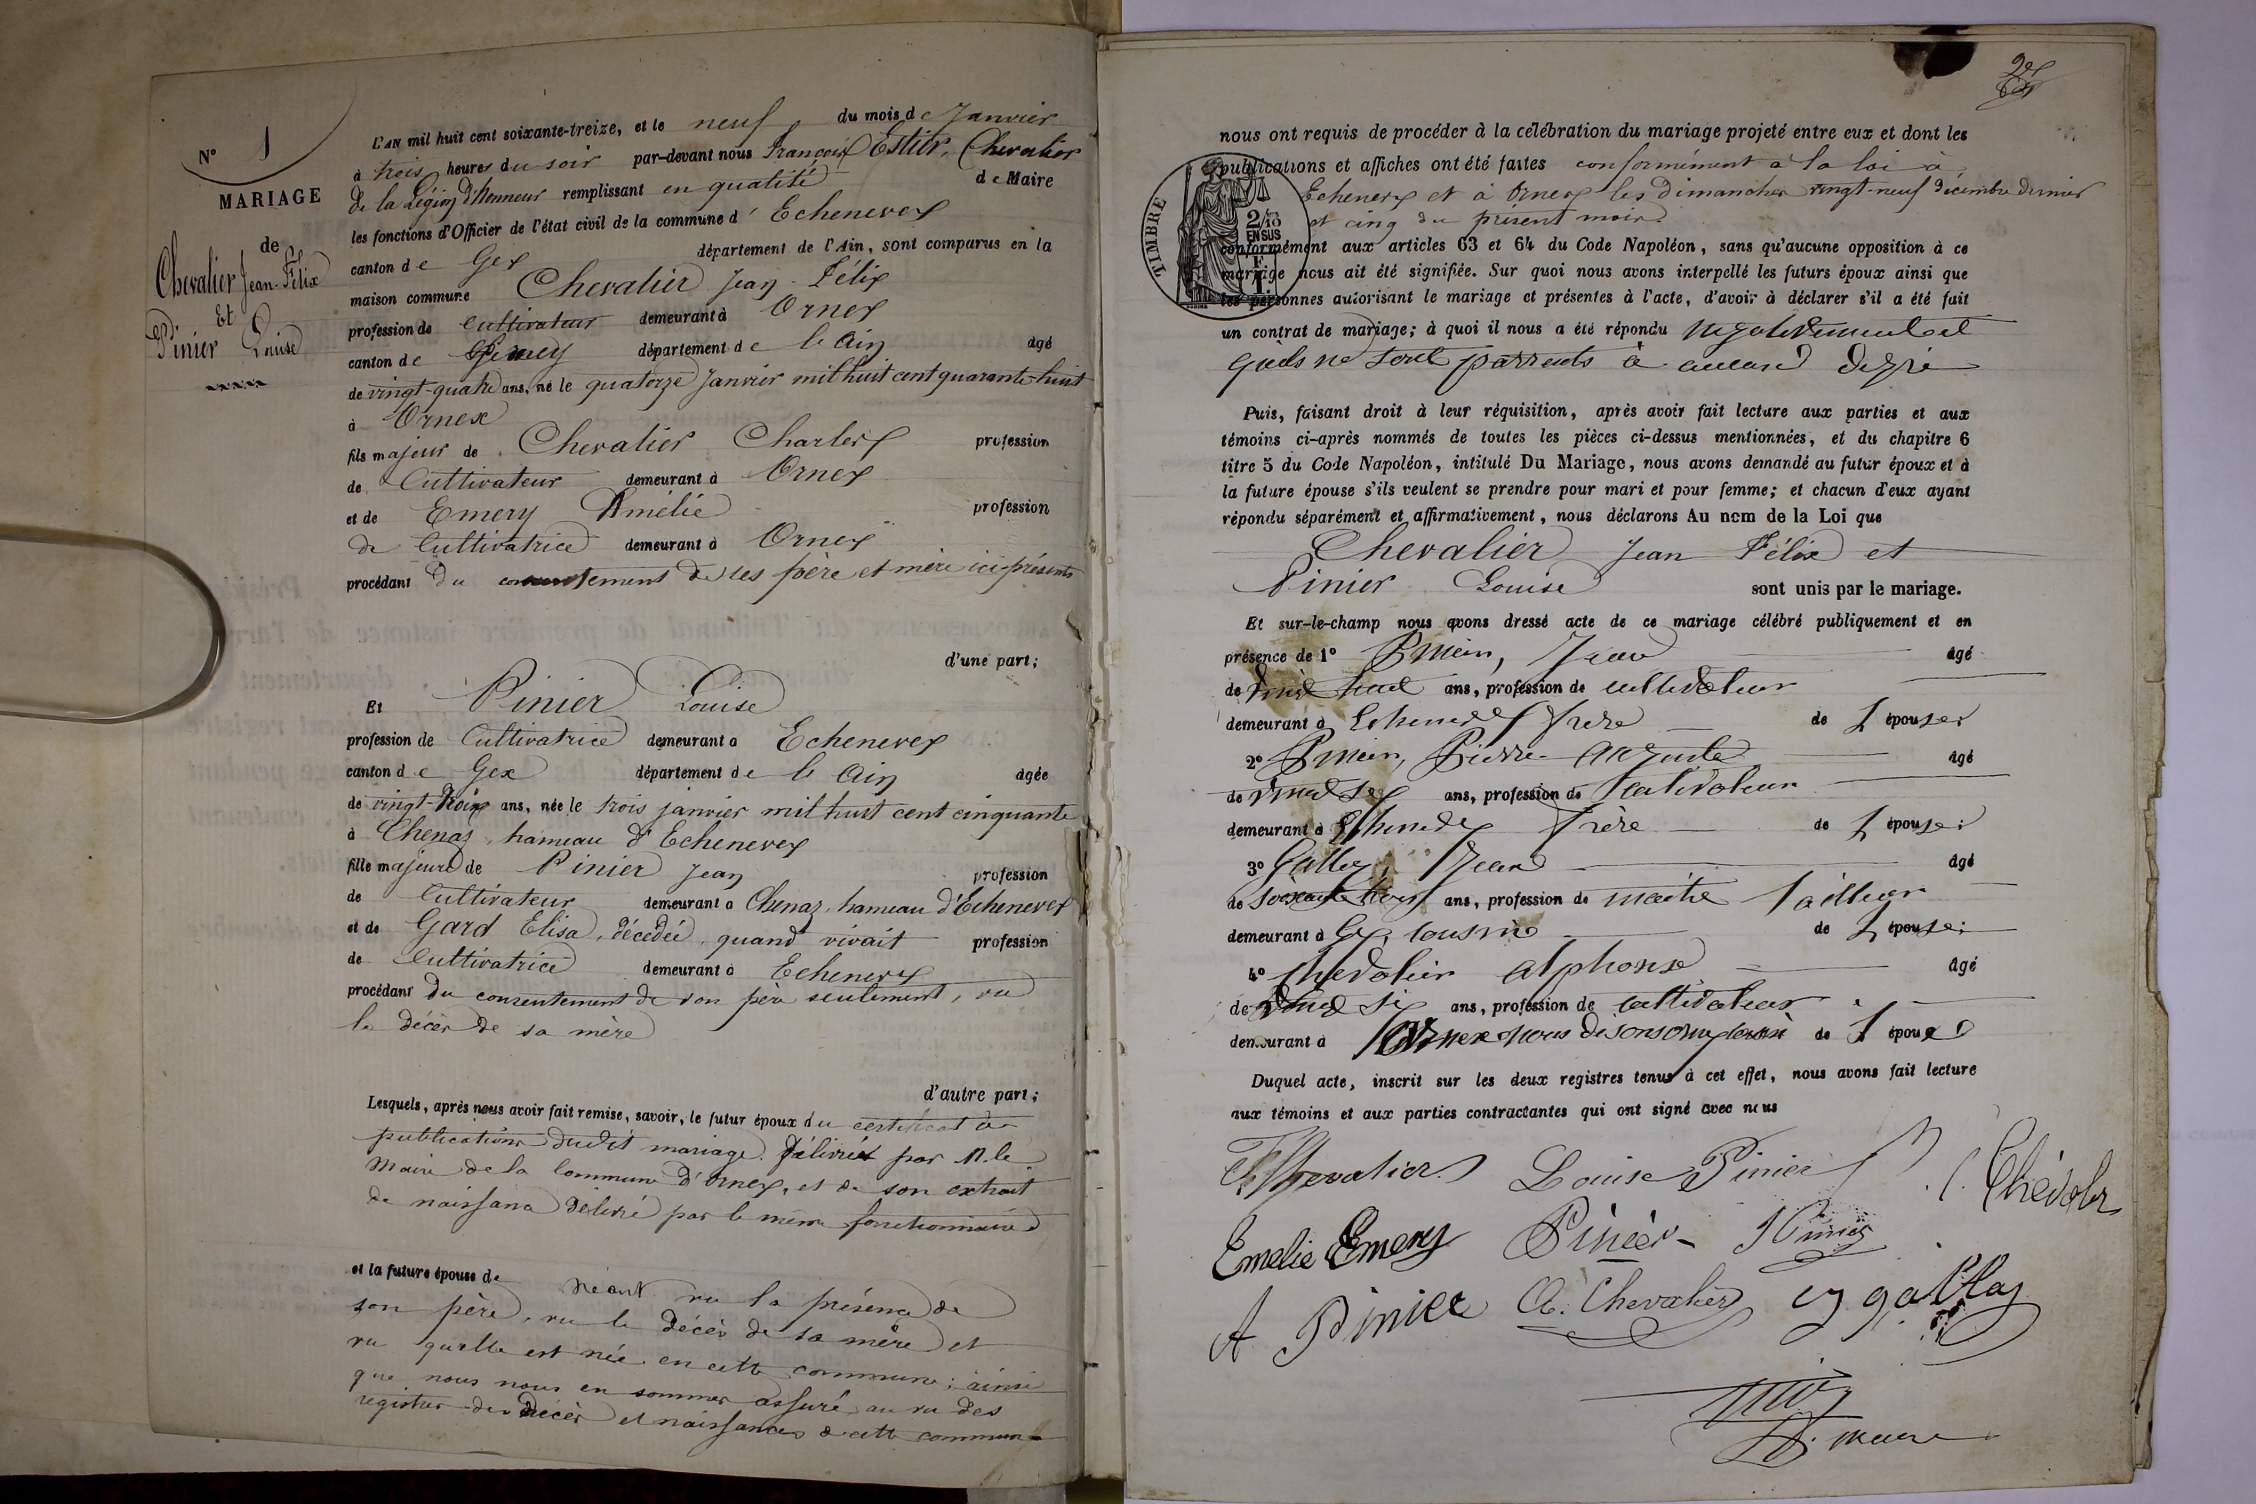 N° 1
MARIAGE
de
Chevalier Jean-Félix
Et
Pinier Louise
L'AN mil huit cent soixante-treize, et le neuf du mois de Janvier
à trois heures du soir par-devant nous François Estier, Chevalier
de la Légion d'Honneur remplissant en qualité de Maire
les fonctions d'Officier de l'état civil de la commune d'Echenevex
canton de Gex département de l'Ain, sont comparus en la
maison commune Chevalier Jean-Félix
profession de cultivateur demeurant à Ornex
canton de Ferney département de l'Ain âgé
de vingt-quatre ans, né le quatorze Janvier mil huit cent quarante-huit
à Ornex
fils majeur de Chevalier Charles profession
de Cultivateur demeurant à Ornex
et de Emery Amélie profession
de Cultivatrice demeurant à Ornex
procédant du consentement de ses père et mère ici présents
d'une part;
Et Pinier Louise
profession de Cultivatrice demeurant à Echenevex
canton de Gex département de l'Ain âgée
de vingt-trois ans, née le trois janvier mil huit cent cinquante
à Chenaz, hameau d'Echenevex
fille majeure de Pinier Jean profession
de Cultivateur demeurant à Chenaz, hameau d'Echenevex
et de Gard Elisa, décédée, quand vivait profession
de Cultivatrice demeurant à Echenevex
procédant du consentement de son père seulement, vu
le décès de sa mère
d'autre part;
Lesquels, après nous avoir fait remise, savoir, le futur époux du certificat de
publications dudit mariage. Délivrés par M. le
Maire de la Commune d'Ornex, et de son extrait
de naissance délivré par le même fonctionnaire
et la future épouse de Néant vu la présence de
son père, vu le décès de sa mère et
vu qu'elle est née en cette commune; ainsi
que nous nous en sommes assuré au vu des
registres des décès et naissances de cette commune
nous ont requis de procéder à la célébration du mariage projeté entre eux et dont les
publications et affiches ont été faites conformément à la loi à
Echenevex et à Ornex les Dimanches vingt-neuf Décembre dernier
et cinq du présent mois
TIMBRE
2/10
EN SUS
1 F.
conformément aux articles 63 et 64 du Code Napoléon, sans qu'aucune opposition à ce
mariage nous ait été signifiée. Sur quoi nous avons interpellé les futurs époux ainsi que
les personnes autorisant le mariage et présentes à l'acte, d'avoir à déclarer s'il a été fait
un contrat de mariage; à quoi il nous a été répondu négativement et
qu'ils ne sont parrents à aucun degré
Puis, faisant droit à leur réquisition, après avoir fait lecture aux parties et aux
témoins ci-après nommés de toutes les pièces ci-dessus mentionnées, et du chapitre 6
titre 5 du Code Napoléon, intitulé Du Mariage, nous avons demandé au futur époux et à
la future épouse s'ils veulent se prendre pour mari et pour femme; et chacun d'eux ayant
répondu séparément et affirmativement, nous déclarons Au nom de la Loi que
Chevalier Jean Félix et
Pinier Louise sont unis par le mariage.
Et sur-le-champ nous avons dressé acte de ce mariage célébré publiquement et en
présence de 1° Jean âgé
de ans, profession de cultivateur
demeurant à Echenevex frère de l'épouse;
2° Pierre âgé
de ans, profession de cultivateur
demeurant à Echenevex frère de l'épouse;
3° Jean âgé
de soixante trois ans, profession de maître tailleur
demeurant à Gex, cousin de l'épouse;
4° Chevalier Alphonse âgé
de ans, profession de cultivateur
demeurant à Ornex nous disons de l'époux
Duquel acte, inscrit sur les deux registres tenus à cet effet, nous avons fait lecture
aux témoins et aux parties contractantes qui ont signé avec nous
Chevalier Louise Pinier C. Chevalier
Emelie Emery Pinier J Pinier
A Pinier A. Chevalier
maire